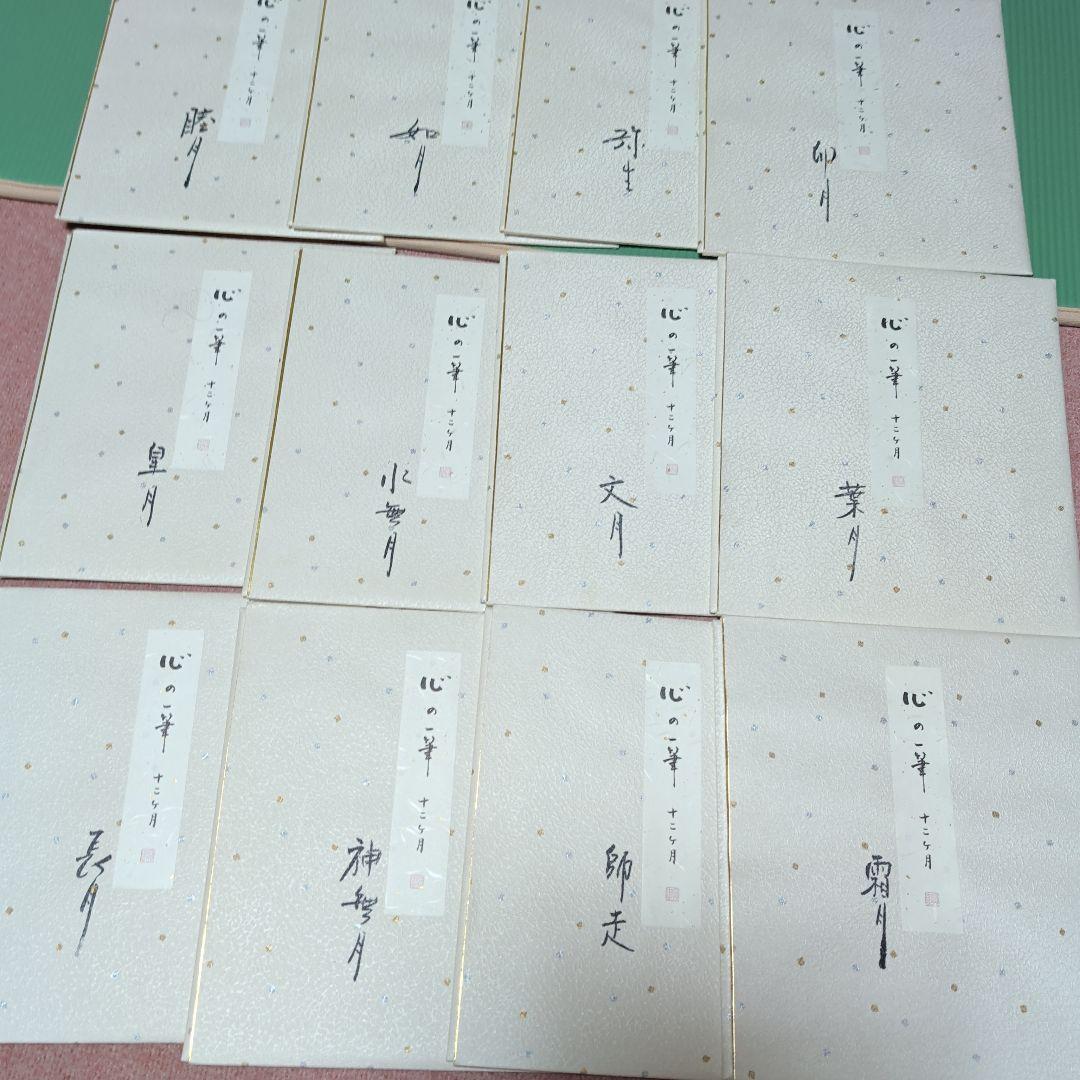 心の一筆 十二ヶ月
睦月
心の一筆 十二ヶ月
如月
心の一筆 十二ヶ月
弥生
心の一筆 十二ヶ月
卯月
心の一筆 十二ヶ月
皐月
心の一筆 十二ヶ月
水無月
心の一筆 十二ヶ月
文月
心の一筆 十二ヶ月
葉月
心の一筆 十二ヶ月
長月
心の一筆 十二ヶ月
神無月
心の一筆 十二ヶ月
師走
心の一筆 十二ヶ月
霜月